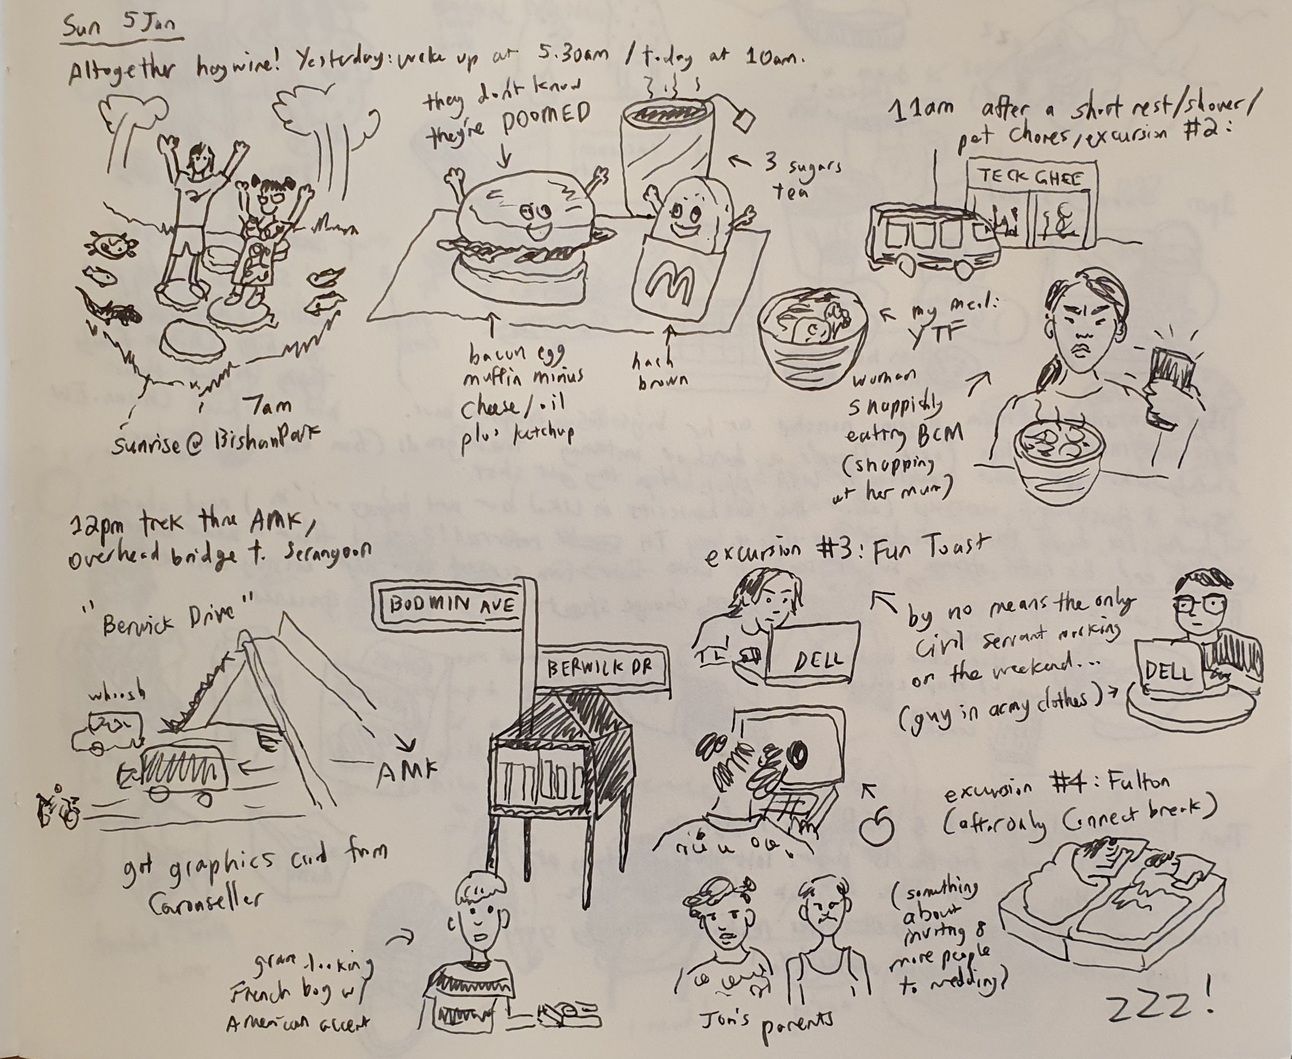 Sun 5 Jan
Altogether haywire! Yesterday: woke up at 5.30am / today at 10am.
they don't know
they're DOOMED
3 sugars
tea
M
bacon egg
muffin minus
cheese/oil
plus ketchup
hash
brown
7am
sunrise @ Bishan Park
11am after a short rest/shower/
pet chores, excursion #2:
TECK GHEE
my meal:
YTF
woman
snappishly
eating BCM
(snapping
at her mum)
12pm trek thru AMK,
overhead bridge t. Serangoon
"Berwick Drive"
whoosh
AMK
got graphics card from
Carouseller
BODMIN AVE
BERWICK DR
grave looking
French boy w/
American accent
excursion #3: Fun Toast
DELL
by no means the only
civil servant working
on the weekend...
(guy in army clothes)
DELL
Jon's parents
(something
about
inviting 8
more people
to wedding)
excursion #4: Fulton
(after only Connect break)
zzz!